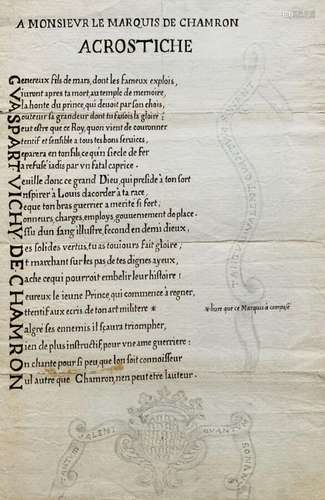 A MONSIEVR LE MARQUIS DE CHAMRON
ACROSTICHE
Genereux fils de mars, dont les fameux explois,
Viuront apres ta mort, au temple de memoire,
A la honte du prince, qui devoit par son chois,
Souteur sa grandeur dont tu faisois la gloire;
Peut estre que ce Roy, quon vient de couronner
Attentif et sensible a tous tes bons services,
Reparera en ton fils, ce qu'in siecle de fer
Ta refusé iadis par vn fatal caprice.
Veuille donc ce grand Dieu, qui preside à ton sort
Inspirer à Louis dacorder à ta race,
Ce que ton bras guerrier a merité si fort,
Honneurs, charges, employs, gouuernement de place.
Yssu du n sang illustre, fecond en demi dieux,
Des solides vertus, tu as touiours fait gloire;
Et marchant sur les pas de tes dignes ayeux,
Cache cequi pourroit embelir leur histoire!
Heureux le ieune Prince, qui commence à regner,
Attentif aux ecris de ton art militere * *livre que ce Marquis à composé
Malgre ses ennemis il scaura triompher,
Rien de plus instructif, pour vne ame guerriere:
On chante pour si peu que lon soit connoisseur
Nul autre que Chamron, nen peut étre lauteur.
TANTUM VALENT QUANTUM SONANT